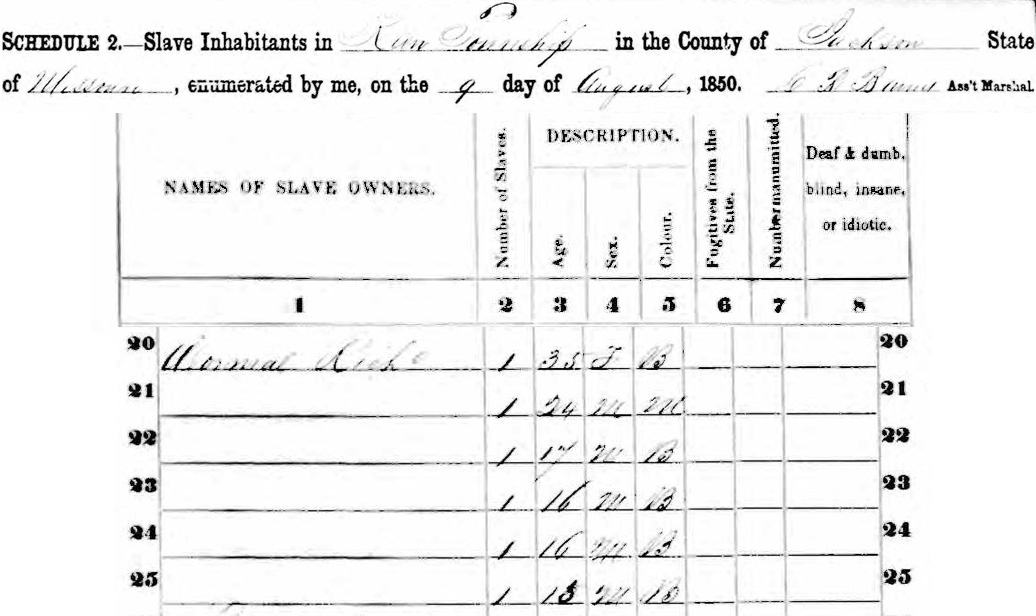 SCHEDULE 2.—Slave Inhabitants in Township in the County of Jackson State
of Missouri, enumerated by me, on the 9 day of August, 1850. Ass't Marshal.
NAMES OF SLAVE OWNERS.
Number of Slaves.
DESCRIPTION.
Age.
Sex.
Colour.
Fugitives from the State.
Number manumitted.
Deaf & dumb,
blind, insane,
or idiotic.
1 2 3 4 5 6 7 8
20 1 35 F B 20
21 1 24 M M 21
22 1 17 M B 22
23 1 16 M B 23
24 1 16 M B 24
25 1 13 M B 25